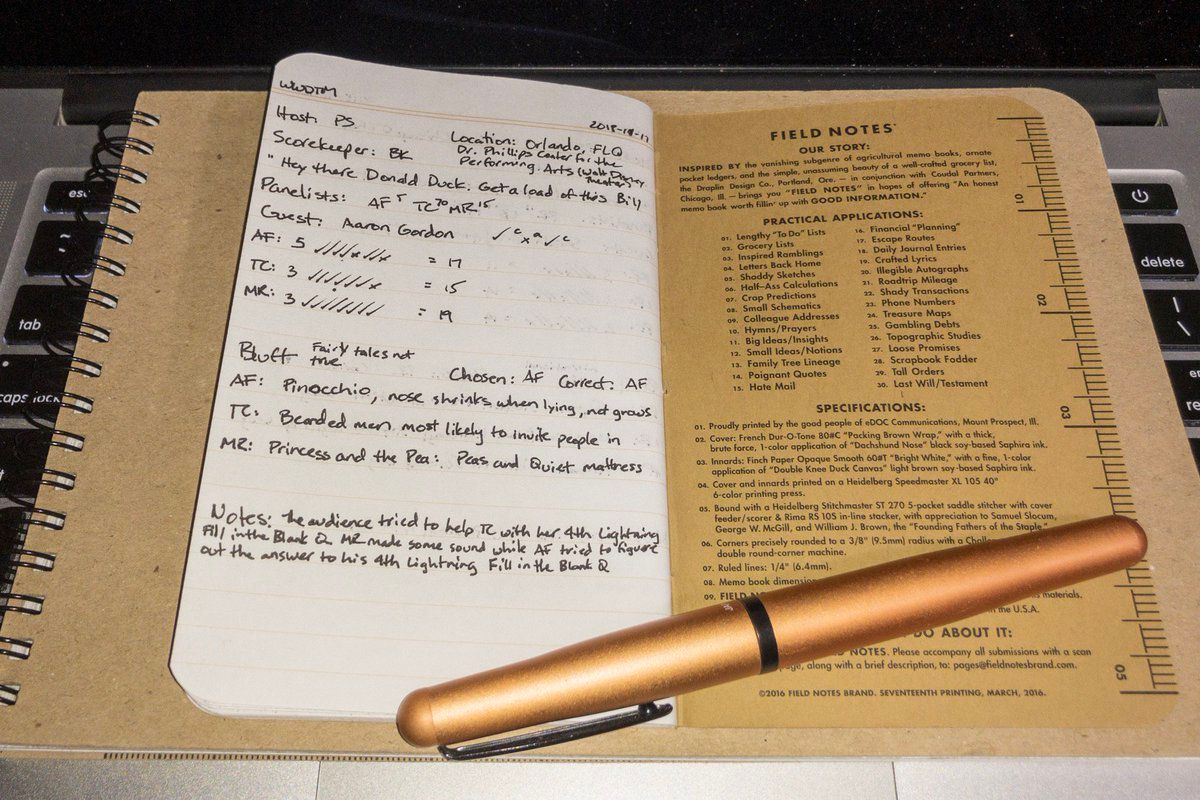 WWDTM
2018-19-17
Host: PS
Location: Orlando, FLQ
Scorekeeper: BK
Dr. Phillips Center for the
Performing Arts (Walt Disney
Theater)
"Hey there Donald Duck. Get a load of this Bill
Panelists: AF⁵ TC⁷⁰ MR¹⁵
Guest: Aaron Gordon ✓c x a ✓c
AF: 5 ////x//x = 17
TC: 3 //////x = 15
MR: 3 //////// = 19
Bluff Fairy tales not
true
Chosen: AF Correct: AF
AF: Pinocchio, nose shrinks when lying, not grows
TC: Bearded men most likely to invite people in
MR: Princess and the Pea: Peas and Quiet mattress
Notes: The audience tried to help TC with her 4th Lightning
Fill in the Blank Q. MR made some sound while AF tried to figure
out the answer to his 4th Lightning Fill in the Blank Q
FIELD NOTES
OUR STORY:
INSPIRED BY the vanishing subgenre of agricultural memo books, ornate
pocket ledgers, and the simple, unassuming beauty of a well-crafted grocery list,
the Draplin Design Co., Portland, Ore. – in conjunction with Coudal Partners,
Chicago, Ill. – brings you "FIELD NOTES" in hopes of offering "An honest
memo book worth fillin' up with GOOD INFORMATION."
PRACTICAL APPLICATIONS:
01. Lengthy "To Do" Lists
02. Grocery Lists
03. Inspired Ramblings
04. Letters Back Home
05. Shoddy Sketches
06. Half-Ass Calculations
07. Crop Predictions
08. Small Schematics
09. Colleague Addresses
10. Hymns/Prayers
11. Big Ideas/Insights
12. Small Ideas/Notions
13. Family Tree Lineage
14. Poignant Quotes
15. Hate Mail
16. Financial "Planning"
17. Escape Routes
18. Daily Journal Entries
19. Crafted Lyrics
20. Illegible Autographs
21. Roadtrip Mileage
22. Shady Transactions
23. Phone Numbers
24. Treasure Maps
25. Gambling Debts
26. Topographic Studies
27. Loose Promises
28. Scrapbook Fodder
29. Tall Orders
30. Last Will/Testament
SPECIFICATIONS:
01. Proudly printed by the good people of eDOC Communications, Mount Prospect, Ill.
02. Cover: French Dur-O-Tone 80#C "Packing Brown Wrap," with a thick,
brute force, 1-color application of "Dachshund Nose" black soy-based Saphira ink.
03. Innards: Finch Paper Opaque Smooth 60#T "Bright White," with a fine, 1-color
application of "Double Knee Duck Canvas" light brown soy-based Saphira ink.
04. Cover and innards printed on a Heidelberg Speedmaster XL 105 40"
6-color printing press.
05. Bound with a Heidelberg Stitchmaster ST 270 5-pocket saddle stitcher with cover
feeder/scorer & Rima RS 10S in-line stacker, with appreciation to Samuel Slocum,
George W. McGill, and William J. Brown, the "Founding Fathers of the Staple."
06. Corners precisely rounded to a 3/8" (9.5mm) radius with a
double round-corner machine.
07. Ruled lines: 1/4" (6.4mm).
08. Memo book
09. FIELD materials.
the U.S.A.
DO ABOUT IT:
NOTES. Please accompany all submissions with a scan
along with a brief description, to: pages@fieldnotesbrand.com.
©2016 FIELD NOTES BRAND. SEVENTEENTH PRINTING, MARCH, 2016.
01
02
03
05
esc
tab
caps lock
delete